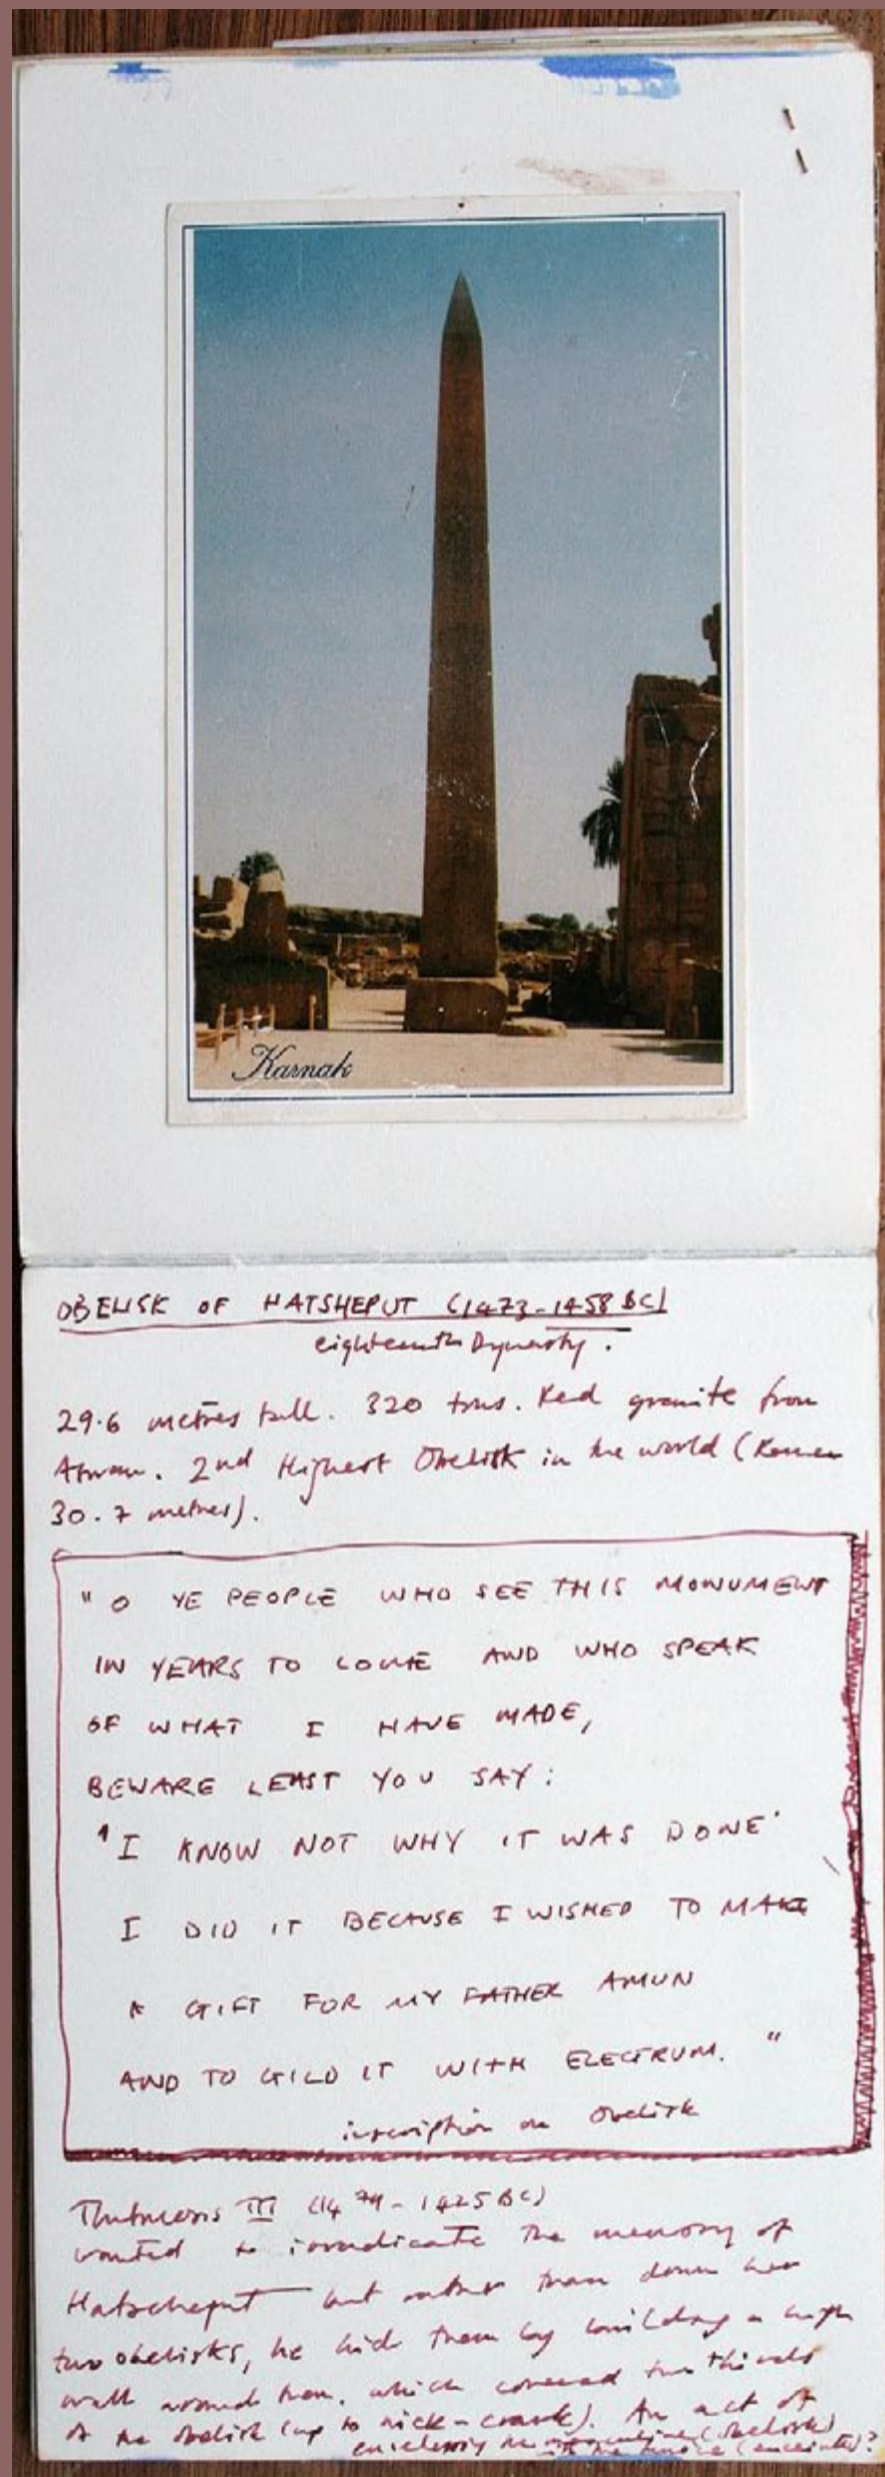 Karnak
OBELISK OF HATSHEPUT (1473-1458 BC)
eighteenth Dynasty.
29.6 metres tall. 320 tons. Red granite from
Aswan. 2nd Highest Obelisk in the world
30.7 metres).
"O YE PEOPLE WHO SEE THIS MONUMENT
IN YEARS TO COME AND WHO SPEAK
OF WHAT I HAVE MADE,
BEWARE LEAST YOU SAY:
'I KNOW NOT WHY IT WAS DONE'
I DID IT BECAUSE I WISHED TO MAKE
A GIFT FOR MY FATHER AMUN
AND TO GILD IT WITH ELECTRUM."
inscription on Obelisk
Thutmosis III (1479-1425 BC)
wanted to irradicate the memory of
Hatsheput but rather than down her
two obelisks, he hid them by building a high
wall around them. which covered two thirds
of the obelisk (up to nick-crack). An act of
enclosing the masculine (obelisk)